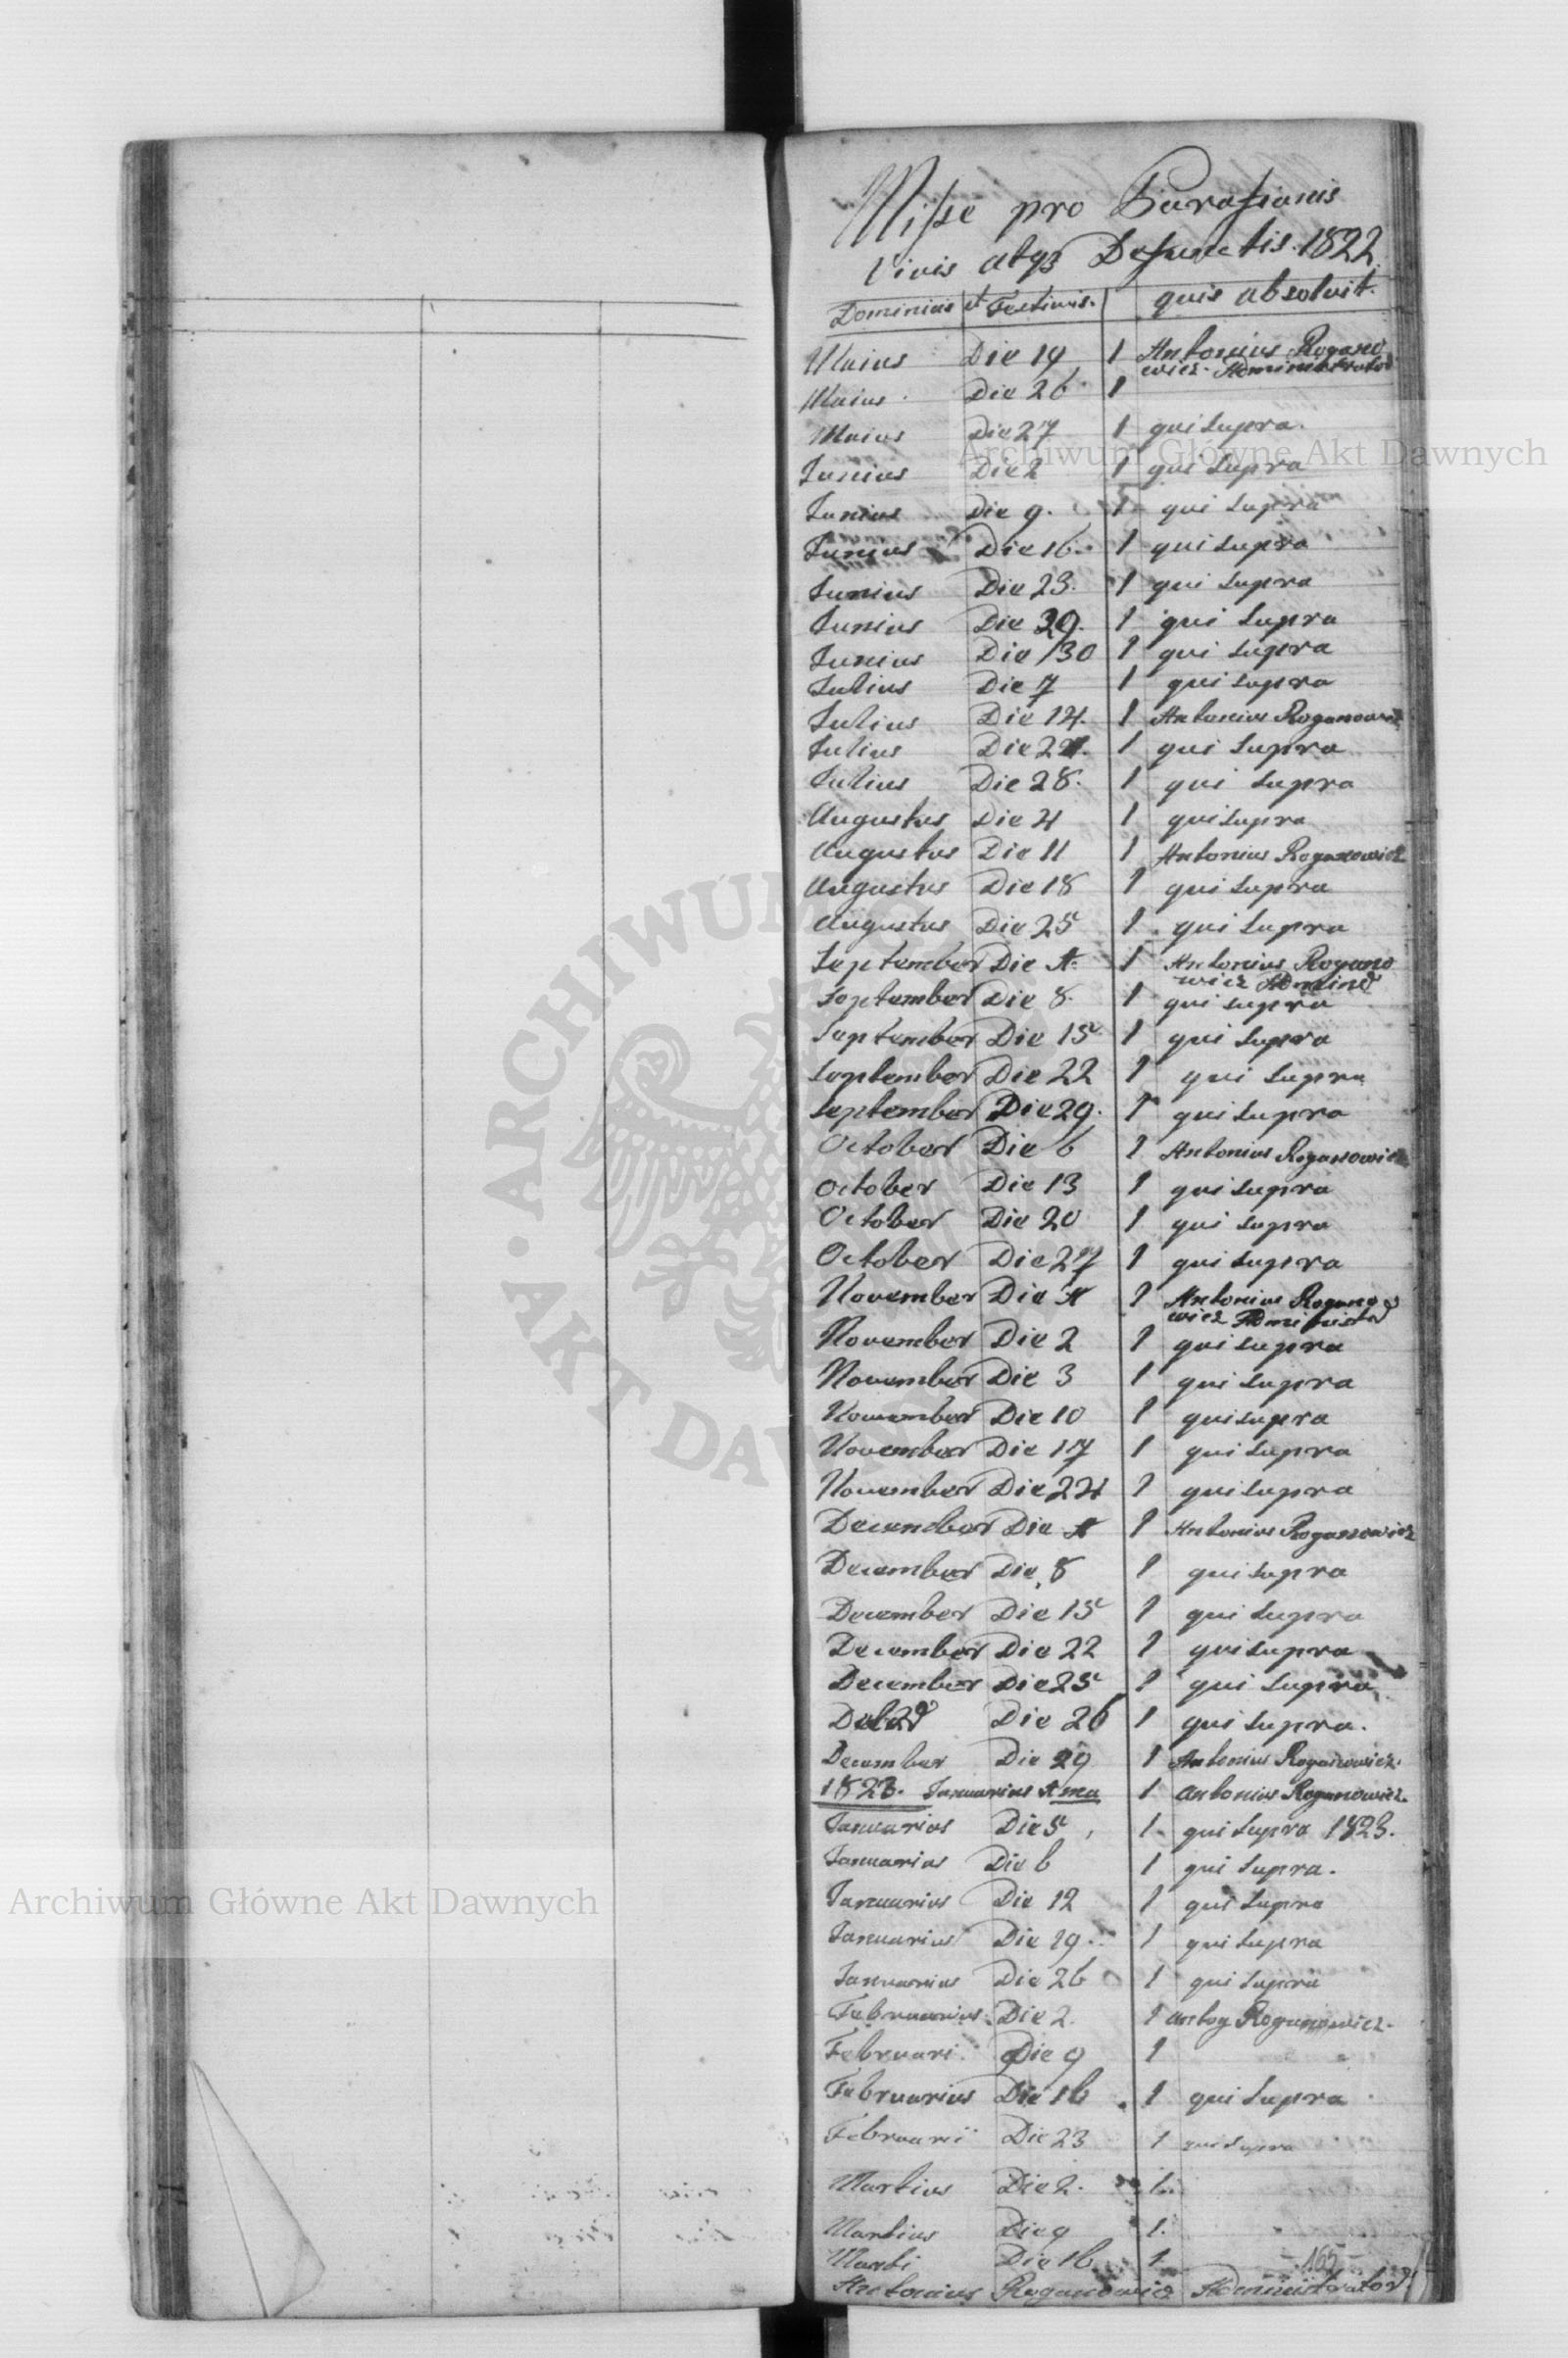 Missæ pro Parafianis
Vivis atqз Defunctis. 1822
Dominicis et Festivis. quis absolvit.
Maius Die 19 1 Antonius Rogano
wicz Administrator
Maius Die 26 1
Maius Die 27 1 qui supra.
Junius Die 2 1 qui supra
Junius Die 9. 1 qui supra
Junius Die 16. 1 qui supra
Junius Die 23. 1 qui supra
Junius Die 29. 1 qui supra
Junius Die 30 1 qui supra
Julius Die 7 1 qui supra
Julius Die 14. 1 Antonius Roganowicz
Julius Die 21. 1 qui supra
Julius Die 28. 1 qui supra
Augustus Die 4 1 qui supra
Augustus Die 11 1 Antonius Roganowicz
Augustus Die 18 1 qui supra
Augustus Die 25 1 qui supra
September Die 1. 1 Antonius Rogano
wicz Adminr
September Die 8. 1 qui supra
September Die 15 1 qui supra
September Die 22 1 qui supra
September Die 29. 1 qui supra
October Die 6 1 Antonius Roganowicz
October Die 13 1 qui supra
October Die 20 1 qui supra
October Die 27 1 qui supra
November Die 1 1 Antonius Rogano
wicz Administr
November Die 2 1 qui supra
November Die 3 1 qui supra
November Die 10 1 qui supra
November Die 17 1 qui supra
November Die 24 1 qui supra
December Die 1 1 Antonius Roganowicz
December Die 8 1 qui supra
December Die 15 1 qui supra
December Die 22 1 qui supra
December Die 25 1 qui supra
Die 26 1 qui supra.
December Die 29 1 Antonius Roganowicz.
1823. Januarius 1 ma 1 Antonius Roganowicz.
Januarius Die 5 1 qui supra 1823.
Januarius Die 6 1 qui supra.
Januarius Die 12 1 qui supra
Januarius Die 19. 1 qui supra
Januarius Die 26 1 qui supra
Februarius Die 2. 1 Antoy Roganowicz.
Februari Die 9 1
Februarius Die 16 1 qui supra
Februarii Die 23 1 qui supra
Martius Die 2. 1.
Martius Die 9 1.
Marti Die 16 1
165
Antonius Roganowicz Administrator.
Archiwum Główne Akt Dawnych
Archiwum Główne Akt Dawnych